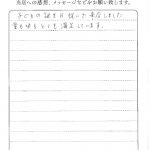 当店への感想、メッセージなどお願い致します。
子どもの誕生日祝いで来店しました
量も味もとても満足しています。